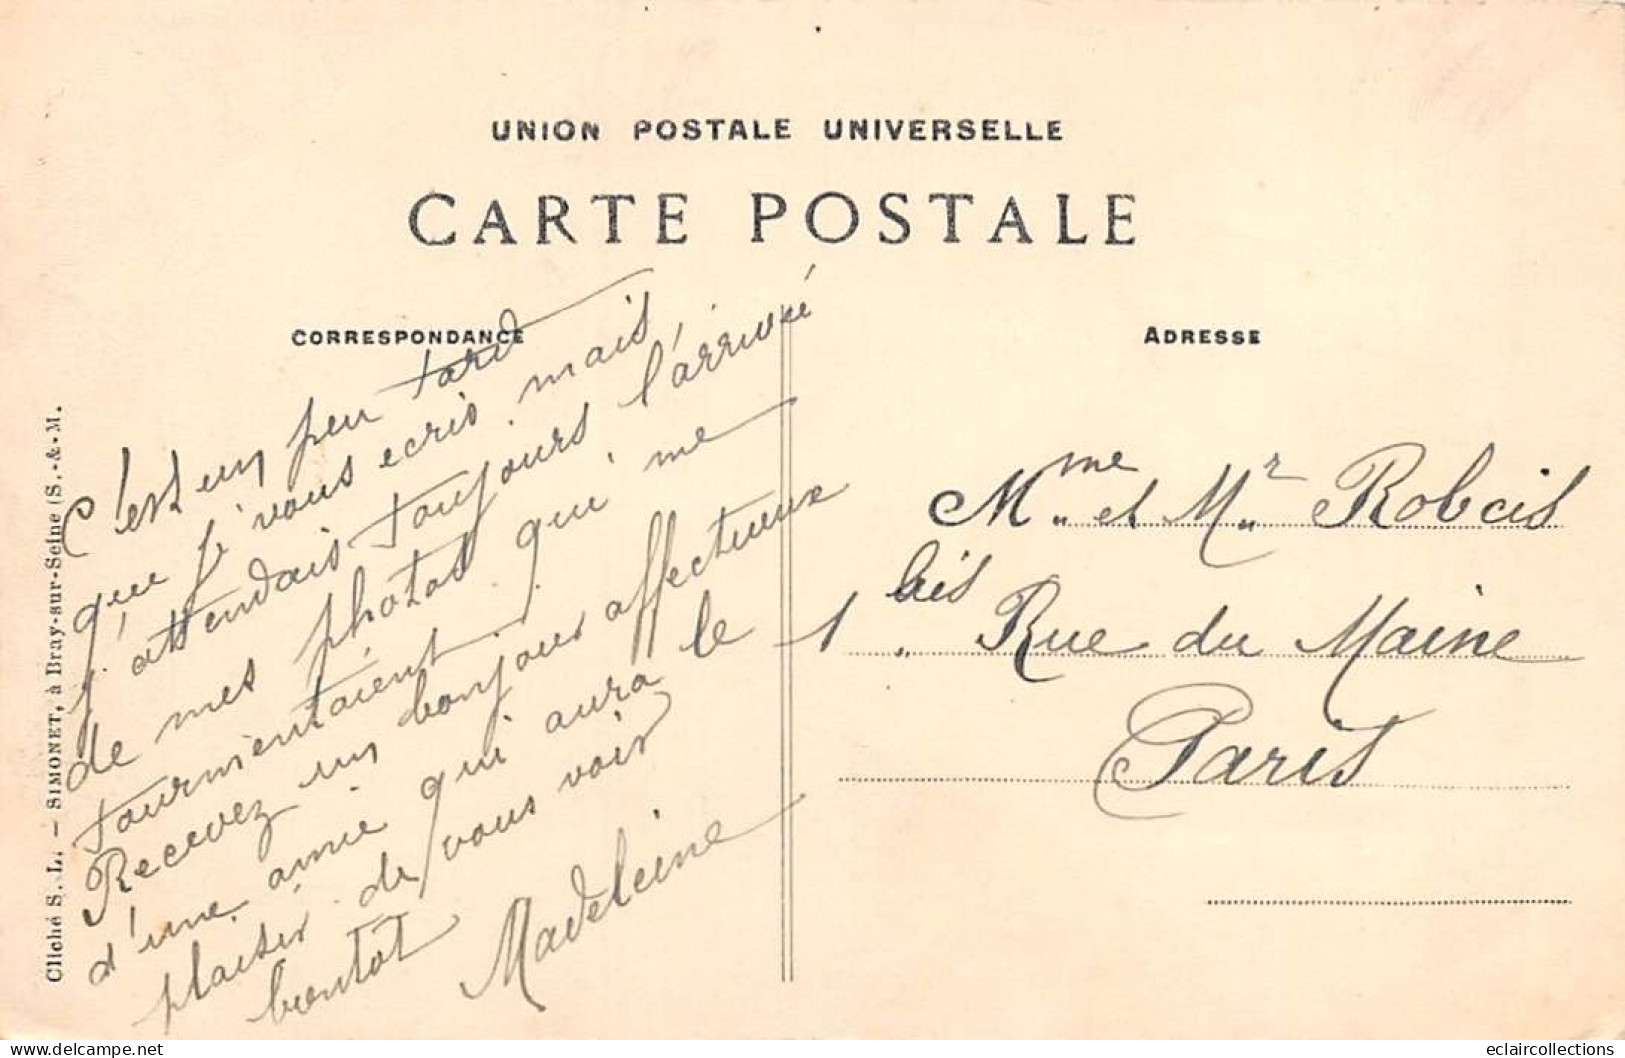 UNION POSTALE UNIVERSELLE
CARTE POSTALE
CORRESPONDANCE
ADRESSE
C'est un peu tard
que j' vous ecris mais,
j'attendais toujours l'arrivé
de mes photos qui me
tourmentaient.
Recevez un bonjour affectueux
d'une amie qui aura le
plaisir de vous voir
bientot
Madeleine
Mme et Mr Robcis
1 bis Rue du Maine
Paris
Cliché S. L. – SIMONET, à Bray-sur-Seine (S.-&-M.
eclaircollections
delcampe.net